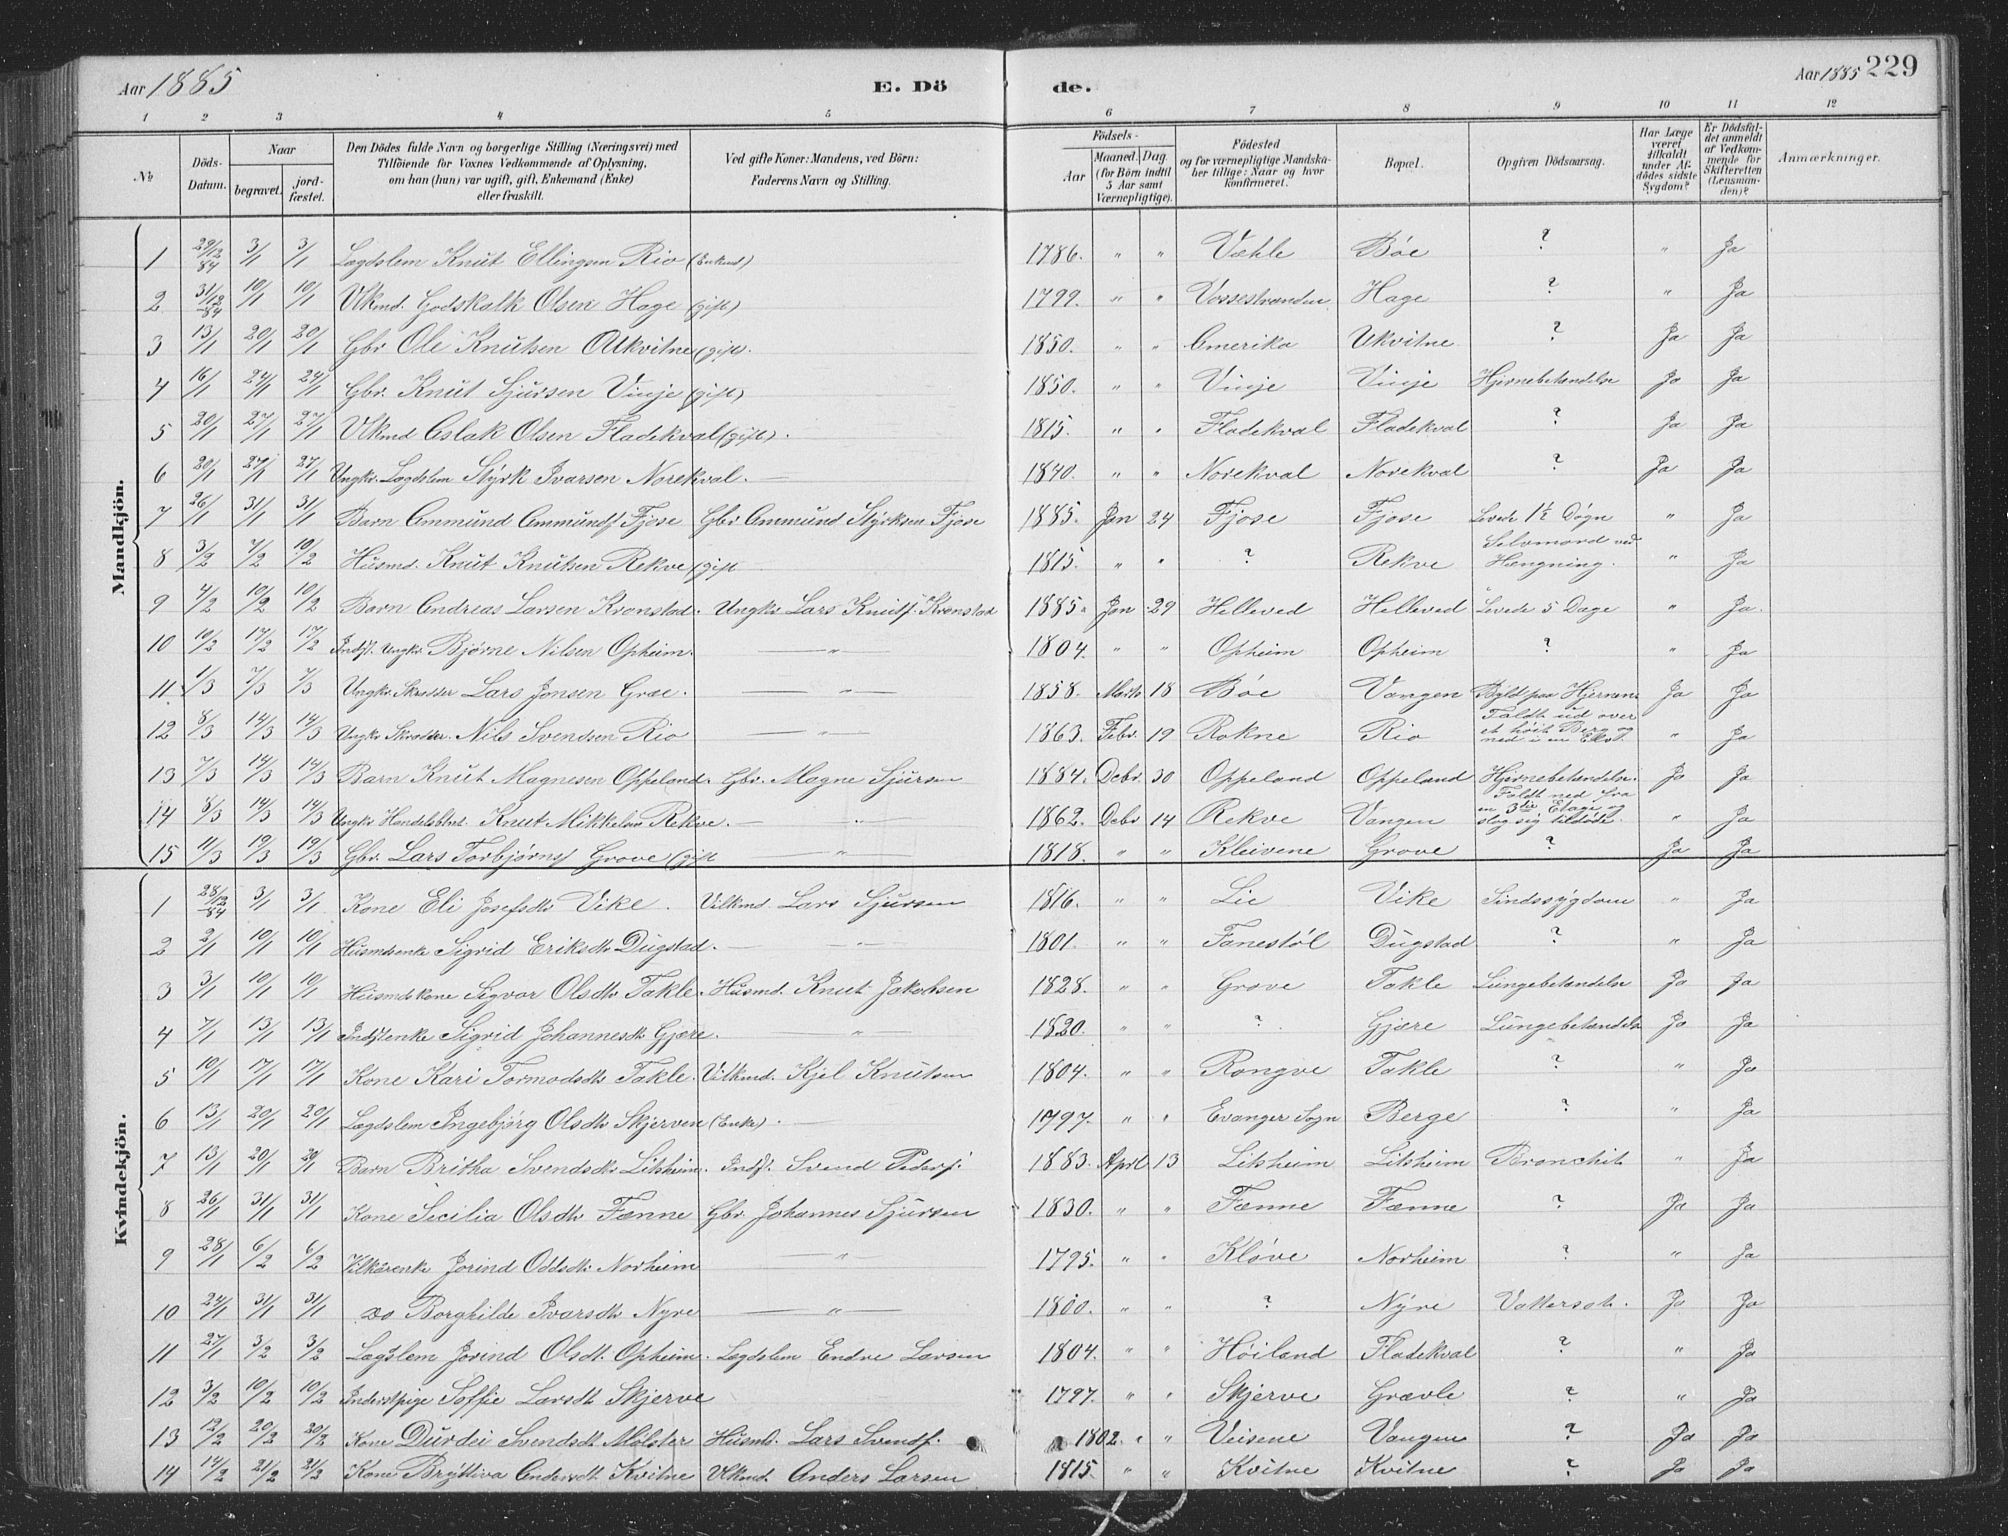 Aar 1885 E. Dö de. Aar 1885 229
1 2 3 4 5 6 7 8 9 10 11 12
No. Döds-Datum. Naar begravet. jordfæstet. Den Dödes fulde Navn og borgerlige Stilling (Næringsvei) med Tilföiende for Voxnes Vedkommende af Oplysning, om han (hun) var ugift, gift, Enkemand (Enke) eller fraskilt. Ved gifte Koner: Mandens, ved Börn: Faderens Navn og Stilling. Födsels- Aar Maaned. Dag (for Börn indtil 5 Aar samt Værnepligtige). Födested og for værnepligtige Mandskaber tillige: Naar og hvor konfirmeret. Bopæl. Opgiven Dödsaarsag. Har Læge været tilkaldt under Afdödes sidste Sygdom? Er Dödsfaldet anmeldt af Vedkommende for Skifteretten (Lensmanden)? Anmærkninger.
Mandkjön.
1 29/12 84 3/1 3/1 Lægdslem Knut Ellingsen Rio (Enkmd) 1786. " " Væhle Bøe ? " Ja
2 31/12 84 10/1 10/1 Vlkmd. Godskalk Olsen Hage (gift) 1799. " " Vossestranden Hage ? " Ja
3 13/1 20/1 20/1 Gbr Ole Knutsen Ukvitne (gift. 1850. " " Amerika Ukvitne ? Ja Ja
4 16/1 24/1 24/1 Gbr. Knut Sjursen Vinje (gift) 1850. " " Vinje Vinje Hjernebetændelse Ja Ja
5 20/1 27/1 27/1 Vlkmd Aslak Olsen Fladekval (gift). 1815. " " Fladekval Fladekval ? Ja Ja
6 20/1 27/1 27/1 Ungkr. Lægdslem Styrk Ivarsen Norekval. 1840. " " Norekval Norekval ? Ja Ja
7 26/1 31/1 31/1 Barn Ammund Ammundsf Fjose Gbr Ammund Styrksen Fjose 1885. Jan 24 Fjose Fjose Levede 1½ Døgn " Ja
8 3/2 7/2 10/2 Husmd. Knut Knutsen Rekve (gift 1815. " " ? Rekve Selvmord ved Hængning. " Ja
9 4/2 10/2 10/2 Barn Andreas Larsen Kronstad. Ungkr Lars Knutsf. Kronstad 1885. Jan 29 Helleved Helleved Levede 5 Dage " Ja.
10 10/2 17/2 17/2 Indst. Ungkr Bjørne Nilsen Opheim. " 1804. " " Opheim Opheim ? " Ja
11 1/3 7/3 7/3 Ungkr Skrædder Lars Jonsen Græe. " 1858. Marts 18 Bøe Vangen Byld paa Hjernen Ja Ja
12 8/3 14/3 14/3 Ungkr Skrædder. Nils Svendsen Rio " 1863. Febr. 19 Rokne Rio Faldt ud over et høit Berg og ned i en Elv. " Ja
13 7/3 14/3 14/3 Barn Knut Magnesen Oppeland. Gbr. Magne Sjursen 1884. Decbr 30 Oppeland Oppeland Hjernebetændelse. Ja Ja
14 8/3 14/3 14/3 Ungkr Handelsbtj. Knut Mikkelsen Rekve. " 1862. Decbr 14 Rekve Vangen Faldt ned fra en 3die Etage og slog sig tildøde. " Ja
15 11/3 19/3 19/3 Gbr. Lars Torbjørnsf Grove (gift " 1818. " " Kleivene Grove ? Ja Ja
Kvindekjön.
1 28/12 84 3/1 3/1 Kone Eli Josefsdtr Vike. Vilkmd. Lars Sjursen 1816. " " Lie Vike Sindssygdom " Ja
2 2/1 10/1 10/1 Husmdsenke Sigrid Eriksdtr Dugstad. " 1801. " " Fanestøl Dugstad ? " Ja
3 3/1 10/1 10/1 Husmdskone Sigvor Olsdtr Takle. Husmd. Knut Jakobsen 1828. " " Grove Takle Lungebetændelse Ja Ja
4 7/1 13/1 13/1 Indstenke Sigrid Johannesdtr Gjære. " 1820. " " ? Gjære Lungebetændelse Ja Ja
5 10/1 17/1 17/1 Kone Kari Tormodsdtr Takle. Vilkmd. Kjel Knutsen 1804. " " Rongve Takle ? " Ja
6 13/1 20/1 20/1 Lægdslem Ingebjørg Olsdtr Skjerven (Enke). 1797. " " Evanger Sogn Berge ? " Ja
7 13/1 20/1 20/1 Barn Britha Svendsdtr Litsheim. Indst. Svend Pedersf. 1883. April 13 Litsheim Litsheim Bronchit " Ja
8 26/1 31/1 31/1 Kone Secilia Olsdtr Fænne Gbr. Johannes Sjursen 1830. " " Fænne Fænne ? Ja Ja
9 28/1 6/2 6/2 Vilkårenke Jorind Oddsdtr Norheim " 1795. " " Kløve Norheim ? " Ja
10 24/1 31/1 31/1 do Borghilde Ivarsdtr Nyre " 1800. " " ? Nyre Vattersot. Ja Ja
11 27/1 3/2 3/2 Lægslem Jorind Olsdt. Opheim. Lægdslem Endre Larsen 1804. " " Høiland Fladekval ? " Ja
12 3/2 10/2 10/2 Inderstpige Soffie Larsdt Skjerve 1797. " " Skjerve Grævle ? " Ja
13 12/2 20/2 20/2 Kone Durdei Svendsdt Mølster Husmd. Lars Svendsf. 1802. " " Veisene Vangen ? Ja Ja
14 14/2 21/2 21/2 Kone Bryttiva Andersdt Kvitne Vlkmd. Anders Larsen 1815. " " Kvitne Kvitne ? Ja Ja